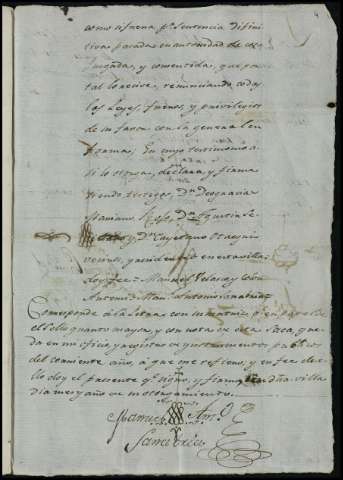 como si fuera por Sentencia difini
tiva pasada en autoridad de co
Juzgada, y consentida, que por
tal lo recive, renunciando todas
las Leyes, fueros, y privilegios
de su favor con la general en
forma. En cuyo testimonio a
si lo otorga, declara, y firma
siendo testigos, Dn
Dn Agustin
y Dn Cayetano
vecinos, y residentes en esta villa
doy fee = Manuel
Antemi = Man.l Antonio
Corresponde a la Letra con su matriz qe en papel
del sello quarto mayor, y con nota de esta Saca, que
da en mi oficio y registro de instrumentos publicos
del corriente año, a que me refiero, y en fee de
ello doy el presente qe signo, y firmo en dha villa
dia mes y año de su otorgamiento.
Manuel Ant.o